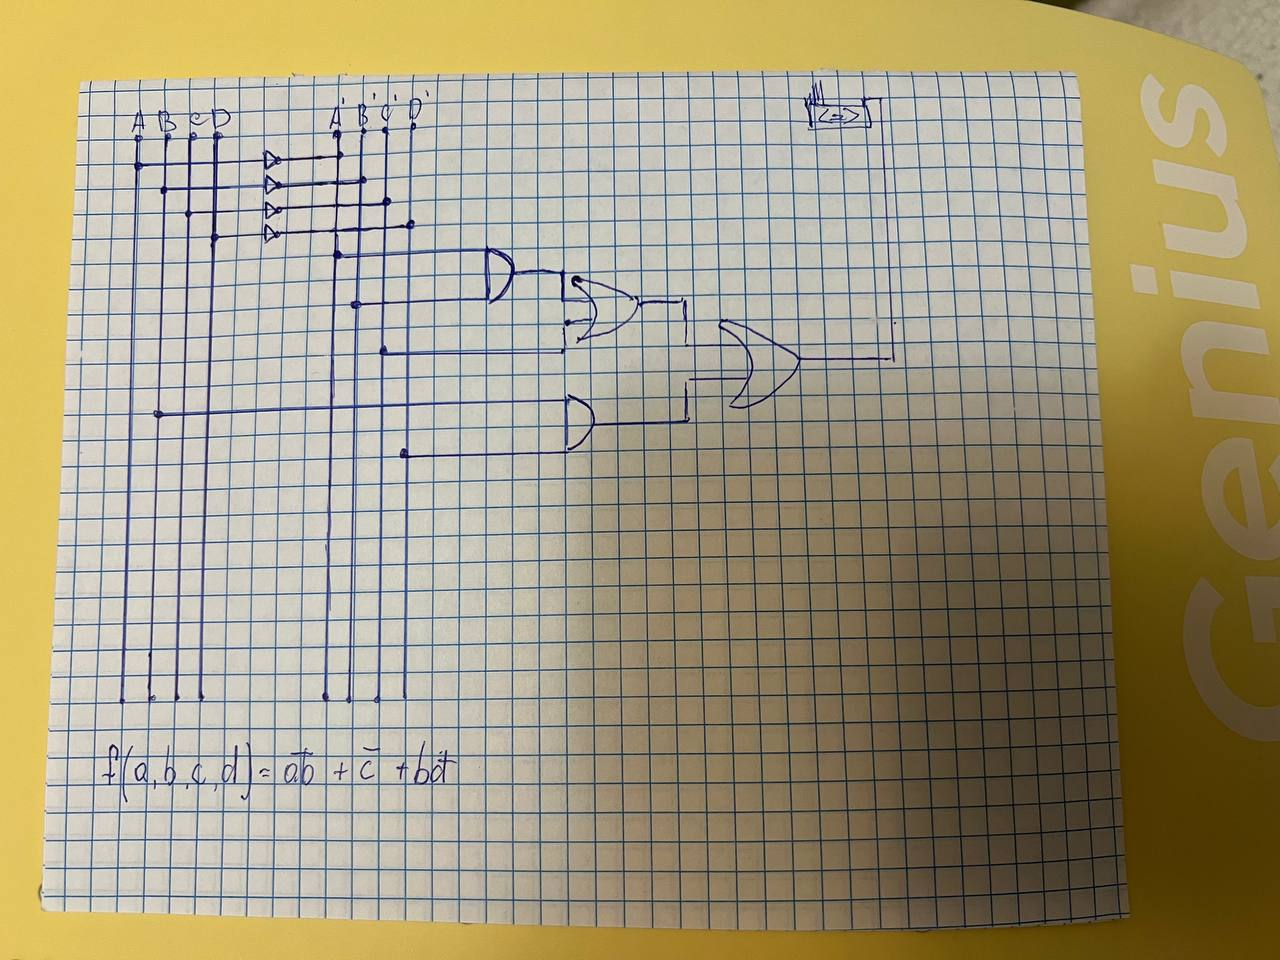 A B C D A' B' C' D'
<=>
f(a,b,c,d) = a̅b̅ + c̅ + bd̅
Genius